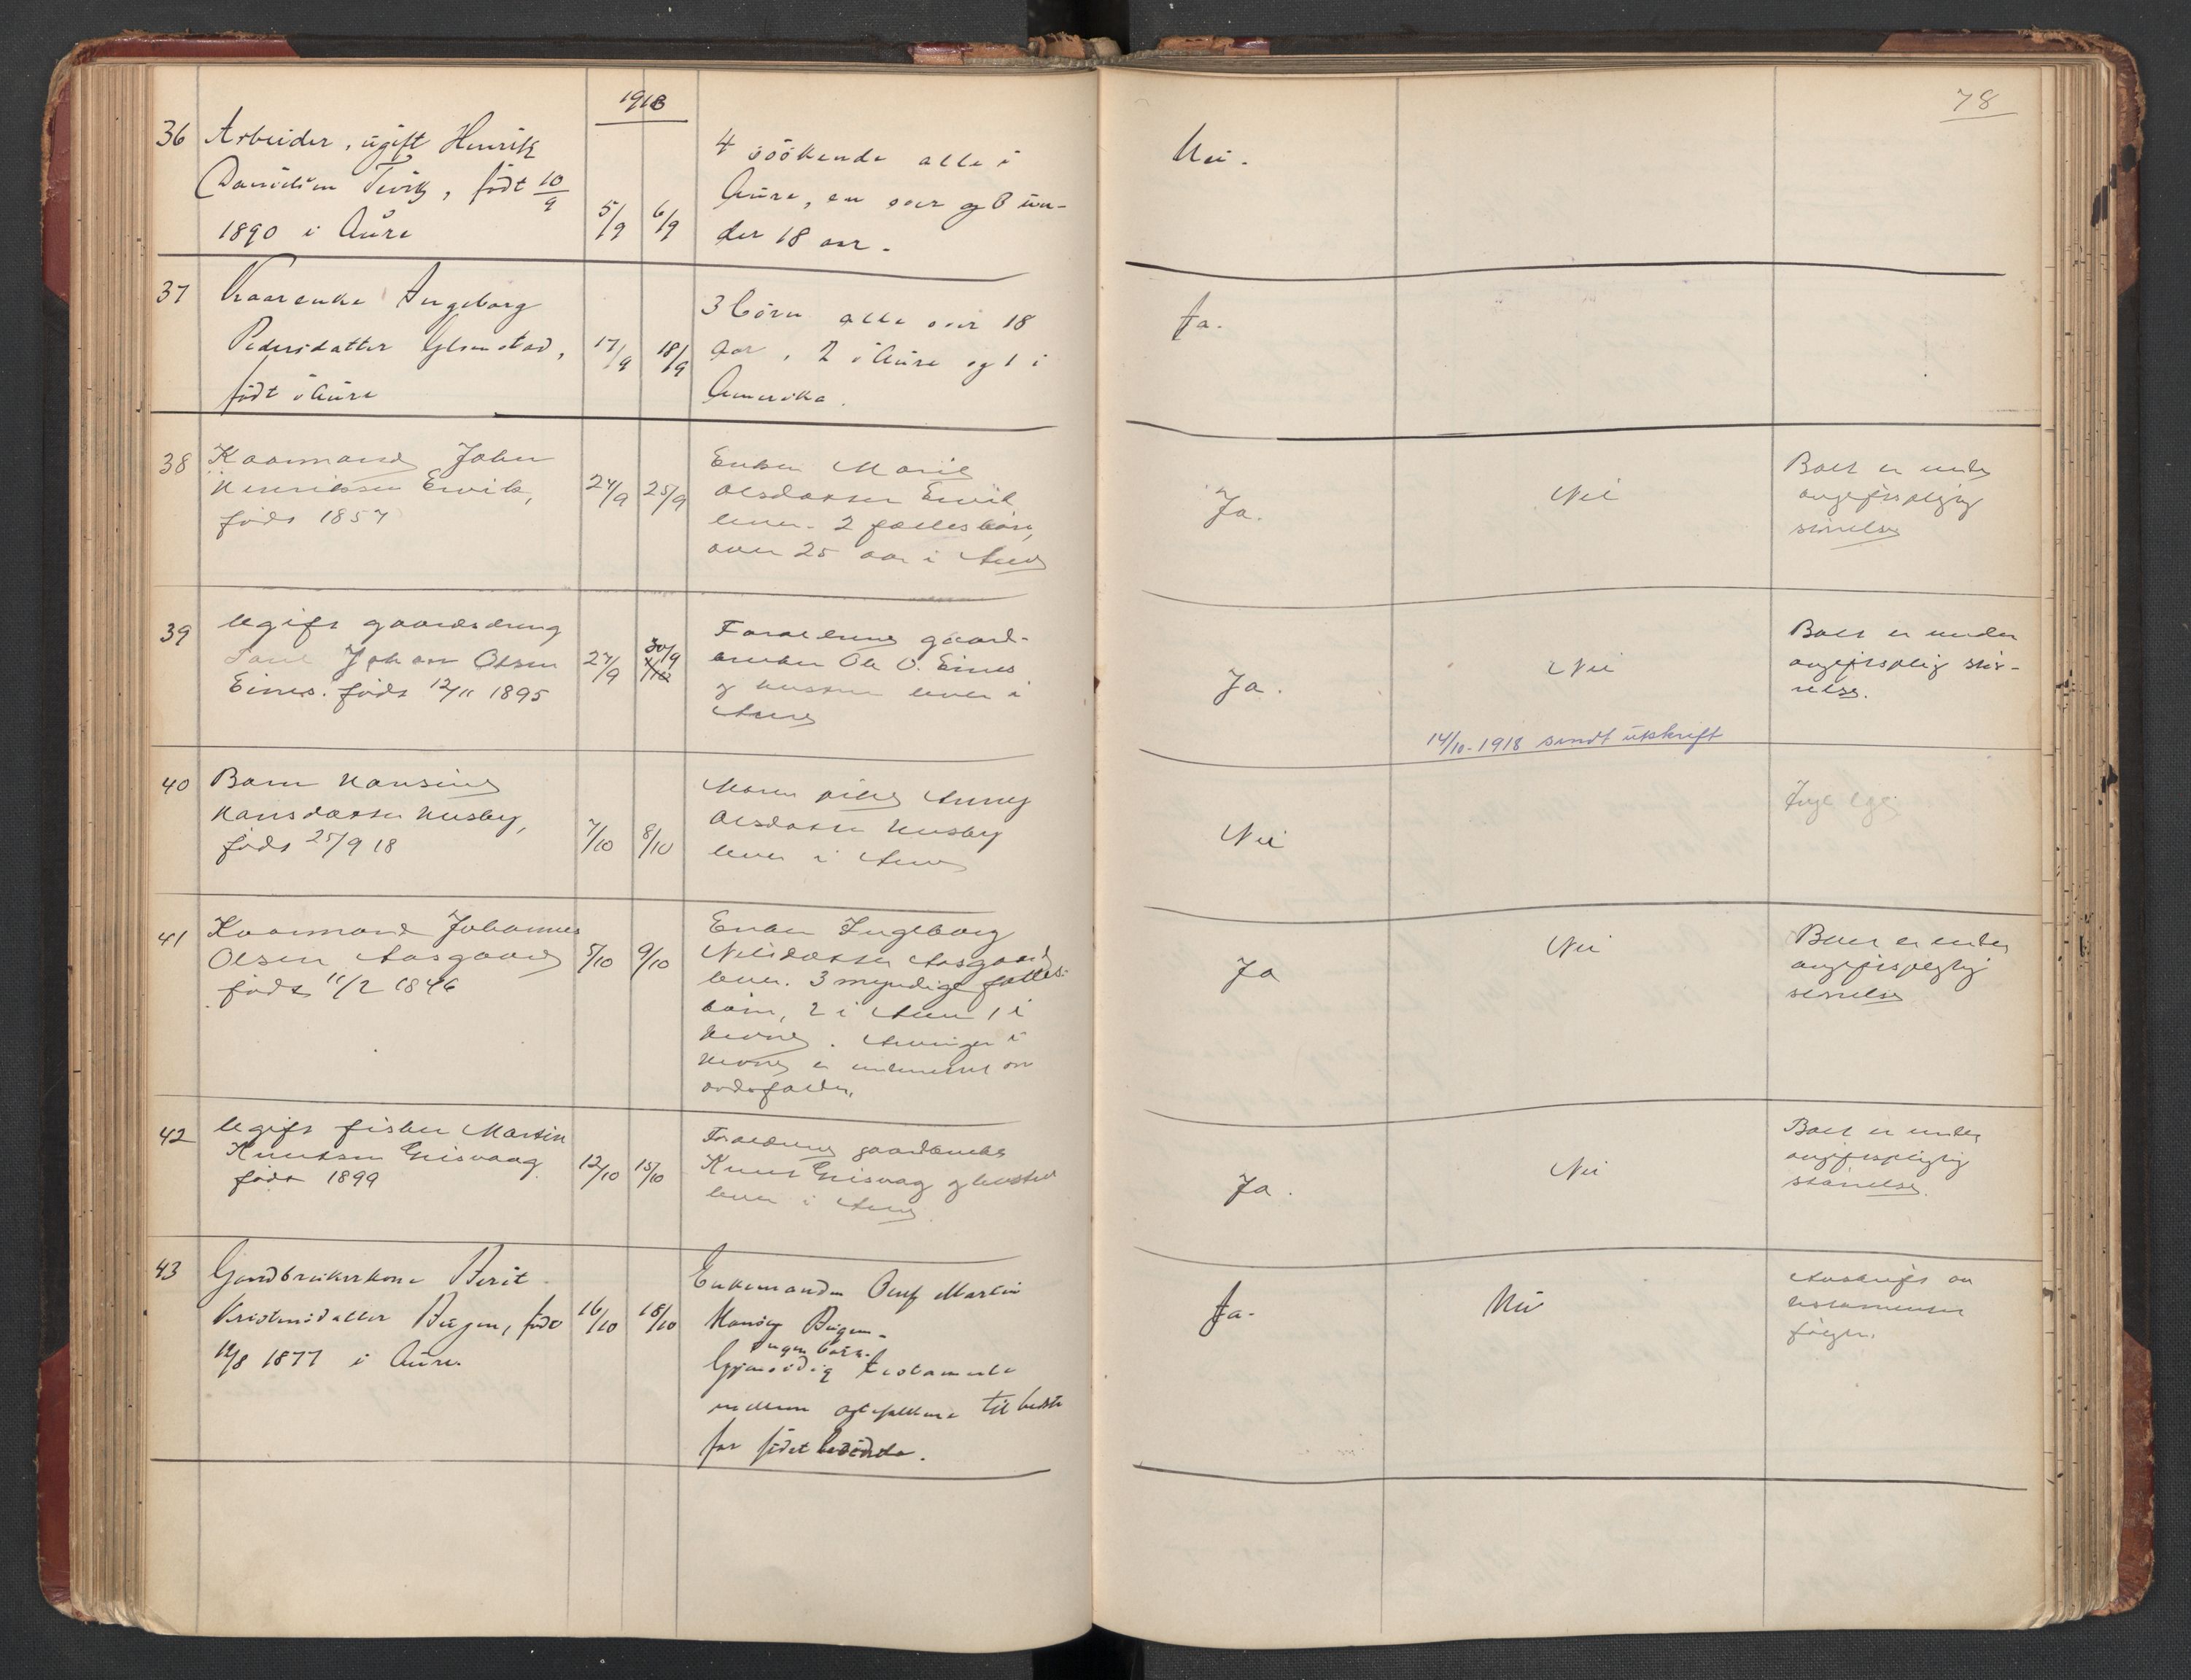 1918
78
36 Arbeider, ugift Henrik
Danielsen Tevik, født 10/9
1890 i Aure
5/9 6/9
4 søskende alle i
Aure, en over og 3 un-
der 18 aar.
Nei.
37 Kaarenke Ingeborg
Pedersdatter Glomstad,
født i Aure
17/9 18/9
3 børn alle over 18
aar, 2 i Aure og 1 i
Amerika.
Ja.
38 Kaarmand Johan
Henriksen Ervik,
født 1857
24/9 25/9
Enken Marie
Olsdatter Ervik
lever. 2 fællesbørn,
over 25 aar i Aure
Ja.
Nei
Boet er under
avgiftspligtig
størrelse
39 Ugift gaardsdreng
Johan Olsen
Eines. født 12/11 1895
27/9 30/9
Forældrene gaard-
bruker Ole O. Eines
og hustru lever i
Aure
Ja.
Nei
Boet er under
avgiftsplig stør-
relse.
14/10-1918 sendt utskrift
40 Barn Hansine
Hansdatter Husby,
født 25/9 18
7/10 8/10
Moren pike Anne
Olsdatter Husby
lever i Aure
Nei
41 Kaarmand Johannes
Olsen Aasgaard
født 11/2 1846
5/10 9/10
Enken Ingeborg
Nilsdatter Aasgaard
lever. 3 myndige fælles-
børn, 2 i Aure 1 i
Hevne. Arvingen i
Hevne er underrettet om
dødsfaldet.
Ja
Nei
Boet er under
avgiftspligtig
størrelse
42 Ugift fisker Martin
Knutsen Grisvaag
født 1899
12/10 15/10
Forældrene gaardbruker
Knut Grisvag og hustru
lever i Aure.
Ja.
Nei
Boet er under
avgiftspligtig
størrelse.
43 Gardbrukerkone Berit
Kristensdatter Bergem, født
12/8 1877 i Aure.
16/10 18/10
Enkemanden Oluf Martin
Bergem.
Ingen børn.
Gjensidig testamente
mellem egtefolkene til bedste
for sidst levende.
Ja.
Nei
Avskrift av
testamentet
følger.